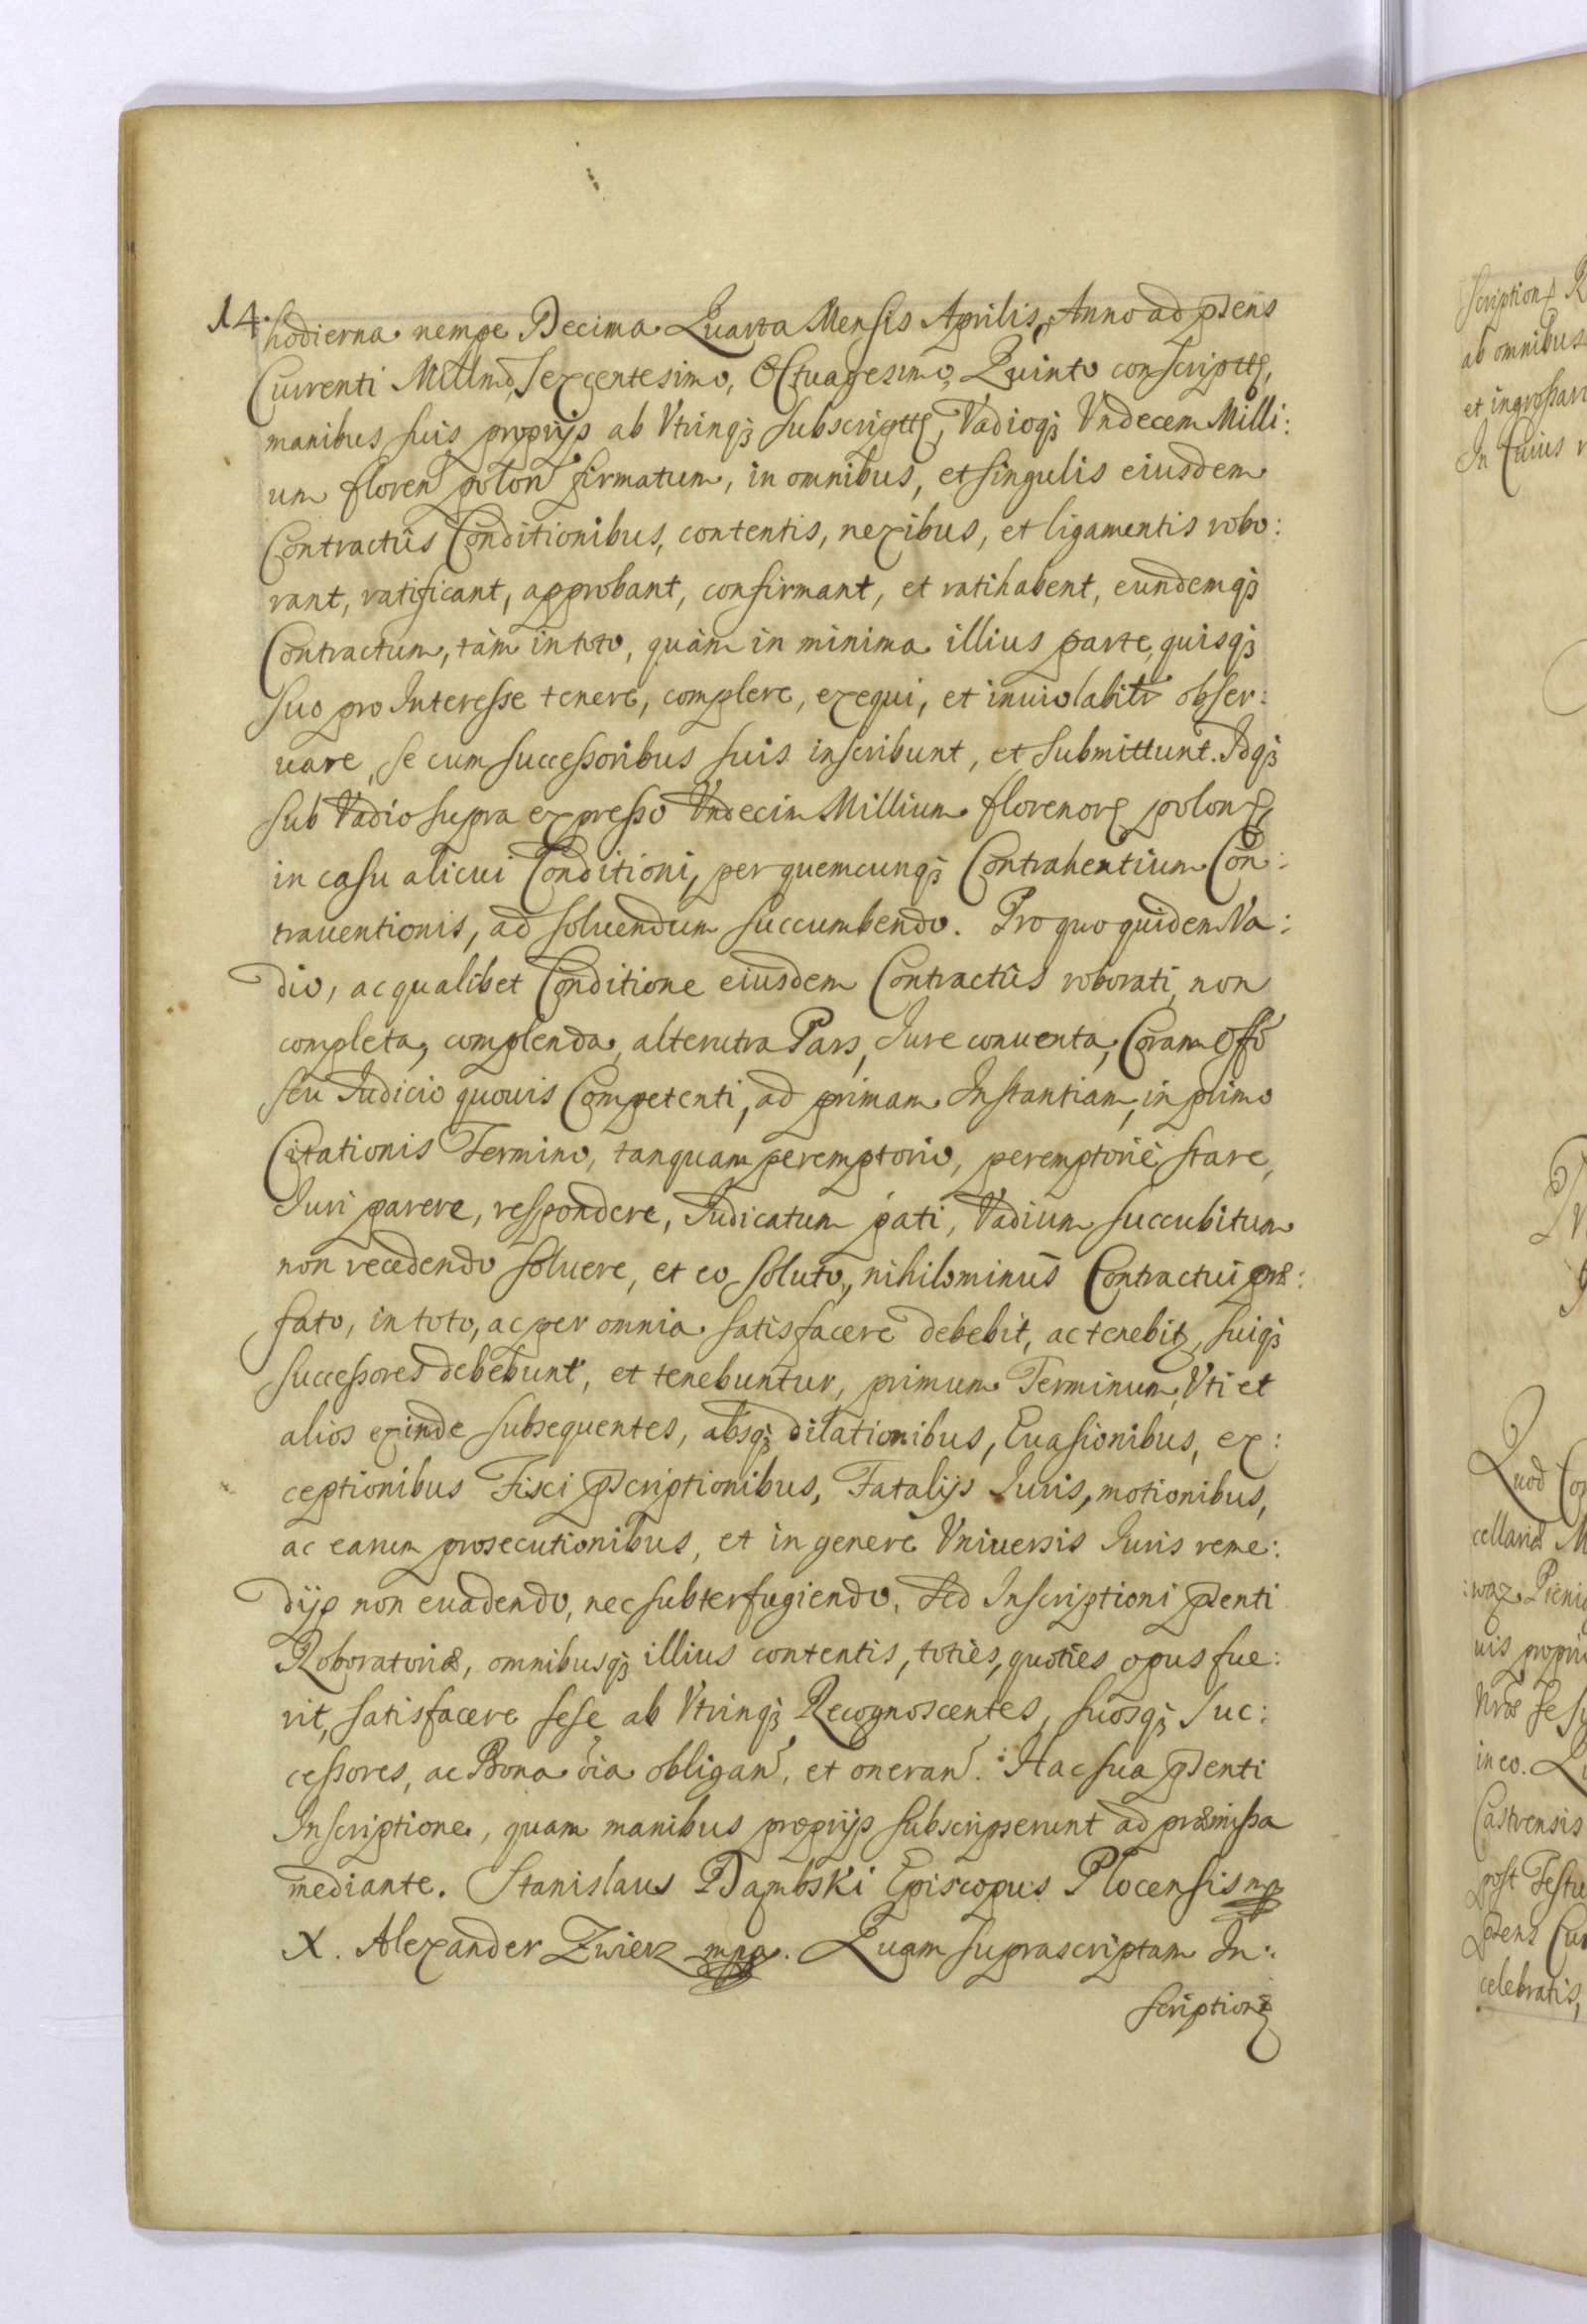 14.
hodierna nempe Decima Quarta Mensis Aprilis, Anno ad pñens
Currenti Millmo, Sexcentesimo, Octuagesimo, Quinto conscriptū,
manibus suis proprijs ab Vtrinqꝫ subscriptū, Vadioqꝫ Vndecem Milli:
um floren̄ polon̄ firmatum, in omnibus, et singulis eiusdem
Contractûs Conditionibus, contentis, nexibus, et ligamentis robo:
rant, ratificant, approbant, confirmant, et ratihabent, eundemqꝫ
Contractum, tàm in toto, quàm in minima illius parte, quisqꝫ
suo pro Interesse tenere, complere, exequi, et inuiolabitr̄ obser:
uare, se cum successoribus suis inscribunt, et submittunt. Idqꝫ
sub Vadio supra expresso Vndecim Millium florenorꝭ polonꝭ,
in casu alicui Conditioni, per quemcunqꝫ Contrahentium Con:
trauentionis, ad soluendum succumbendo. Pro quo quidem Va:
dio, ac qualibet Conditione eiusdem Contractûs roborati, non
completa, complenda, alterutra Pars, Iure conuenta, Coram Offō
seu Iudicio quouis Competenti, ad primam Instantiam, in primo
Citationis Termino, tanquam peremptorio, peremptoriè stare,
Iuri parere, respondere, Iudicatum pati, Vadium succubitum
non recedendo soluere, et eo soluto, nihilominûs Contractui præ:
fato, in toto, ac per omnia satisfacere debebit, ac tenebitꝫ, suiqꝫ
successores debebunt, et tenebuntur, primum Terminum, Vti et
alios exinde subsequentes, absqꝫ dilationibus, Euasionibus, ex:
ceptionibus Fisci pscriptionibus, Fatalijs Iuris, motionibus,
ac earum prosecutionibus, et in genere Vniuersis Iuris reme:
dijs non euadendo, nec subterfugiendo. Sed Inscriptioni pñenti
Roboratoriæ, omnibusqꝫ illius contentis, toties, quoties opus fue:
rit, satisfacere sese ab Vtrinqꝫ Recognoscentes, suosqꝫ Suc:
cessores, ac Bona oīa obligan̄, et oneran̄. Hac sua pñenti
Inscriptione, quam manibus proprijs subscripserunt ad præmissa
mediante. Stanislaus Dąmbski Episcopus Plocensis mp
X. Alexander Zwierz mpa. Quam suprascriptam In:
scriptionꝫ
scriptionꝭ
ab omnibus
et ingrossari
In Cuius
Quod
cellariæ M
uis propri
in eo.
Castrensis
post Festu
pñens
celebratis,